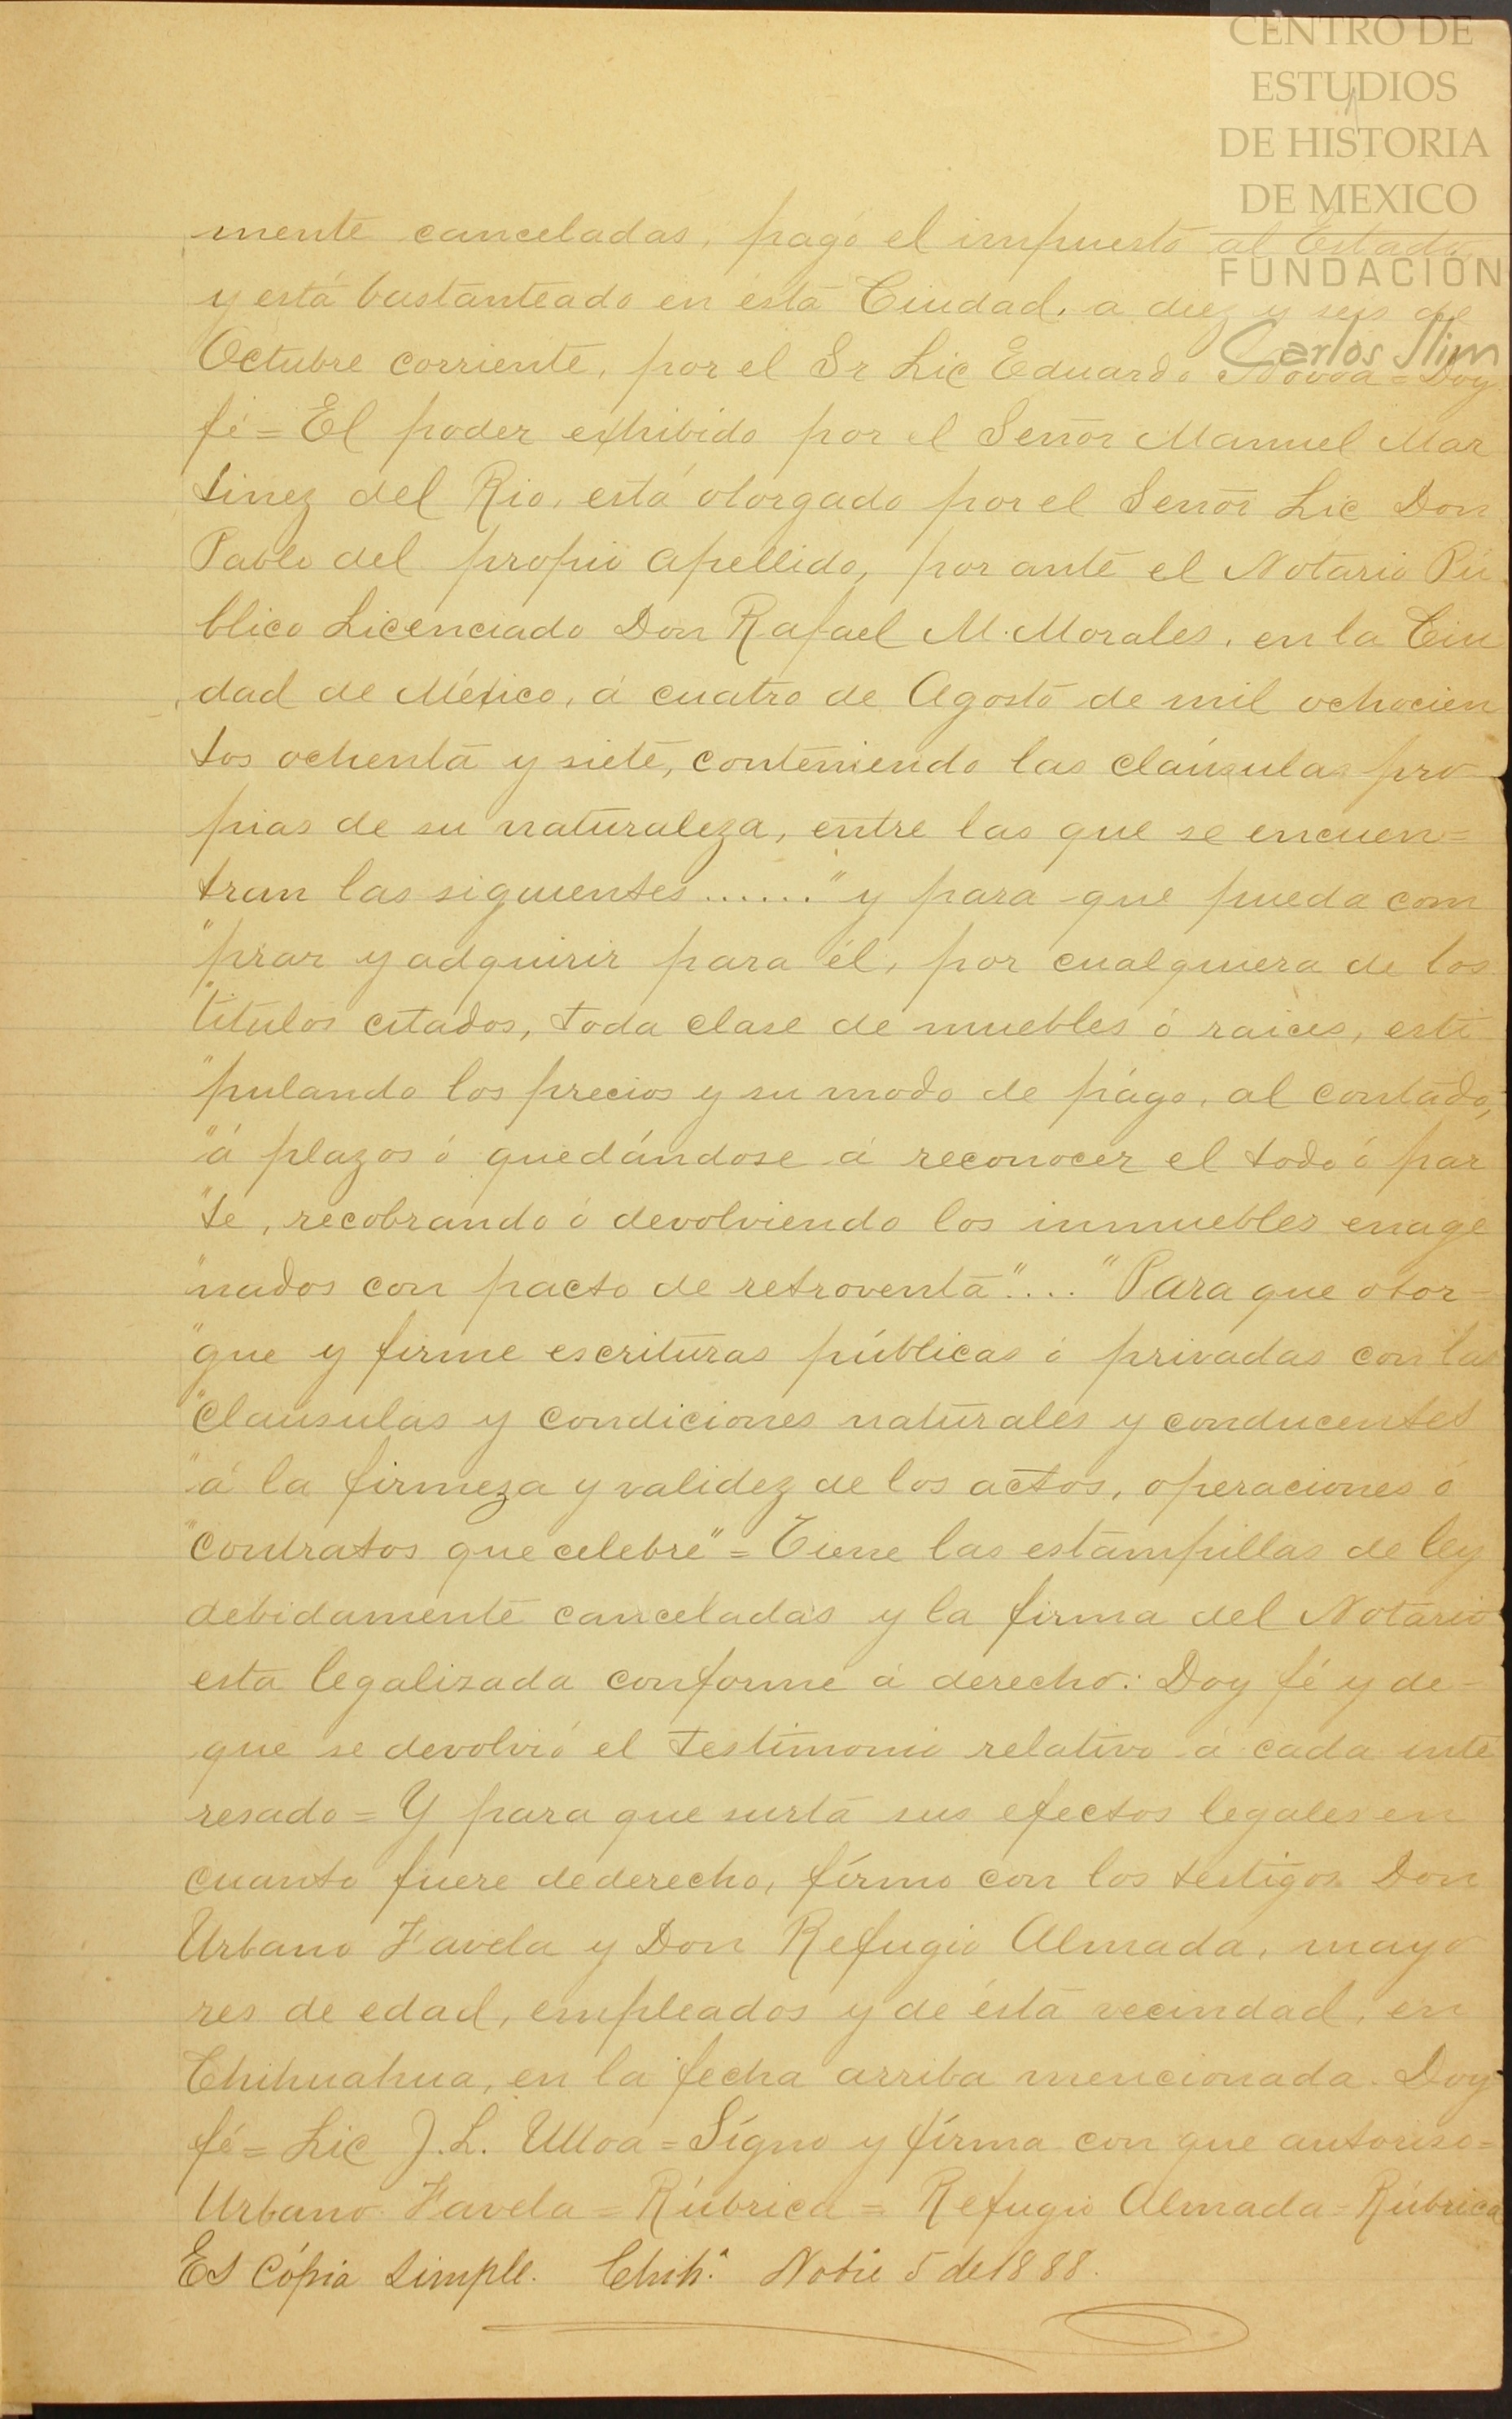 CENTRO DE
ESTUDIOS
DE HISTORIA
DE MEXICO
FUNDACIÓN
Carlos Slim
mente canceladas, pagó el impuesto al Estado
y está bastanteado en ésta Ciudad, a diez y seis de
Octubre corriente, por el Sr Lic Eduardo Novoa = Doy
fé = El poder exhibido por el Señor Manuel Mar
tinez del Rio, está otorgado por el Señor Lic Don
Pablo del propio apellido, por ante el Notario Pú
blico Licenciado Don Rafael M. Morales, en la Ciu
dad de México, á cuatro de Agosto de mil ochocien
tos ochenta y siete, conteniendo las claúsulas pro
pias de su naturaleza, entre las que se encuen=
tran las siguientes ...... "y para que pueda com
"prar y adquirir para él, por cualquiera de los
"titulos citados, toda clase de muebles ó raices, esti
"pulando los precios y su modo de págo, al contado,
"á plazos ó quedándose á reconocer el todo ó par
"te, recobrando ó devolviendo los inmuebles enage
"nados con pacto de retroventa".... "Para que otor=
"gue y firme escrituras públicas ó privadas con las
"clausulas y condiciones naturales y conducentes
"á la firmeza y validez de los actos, operaciones ó
"contratos que celebre" = Tiene las estampillas de ley
debidamente canceladas y la firma del Notario
esta legalizada conforme á derecho: Doy fé y de=
que se devolvió el testimonio relativo á cada inte
resado = Y para que surta sus efectos legales en
cuanto fuere de derecho, fírmo con los testigos Don
Urbano Favela y Don Refugio Almada, mayo
res de edad, empleados y de ésta vecindad, en
Chihuahua, en la fecha arriba mencionada. Doy
fé = Lic J. L. Ulloa = Sígno y fírma con que autoriso=
Urbano Favela = Rúbrica = Refugio Almada = Rúbrica
Es cópia simple. Chihª. Nobre 5 de 1888.